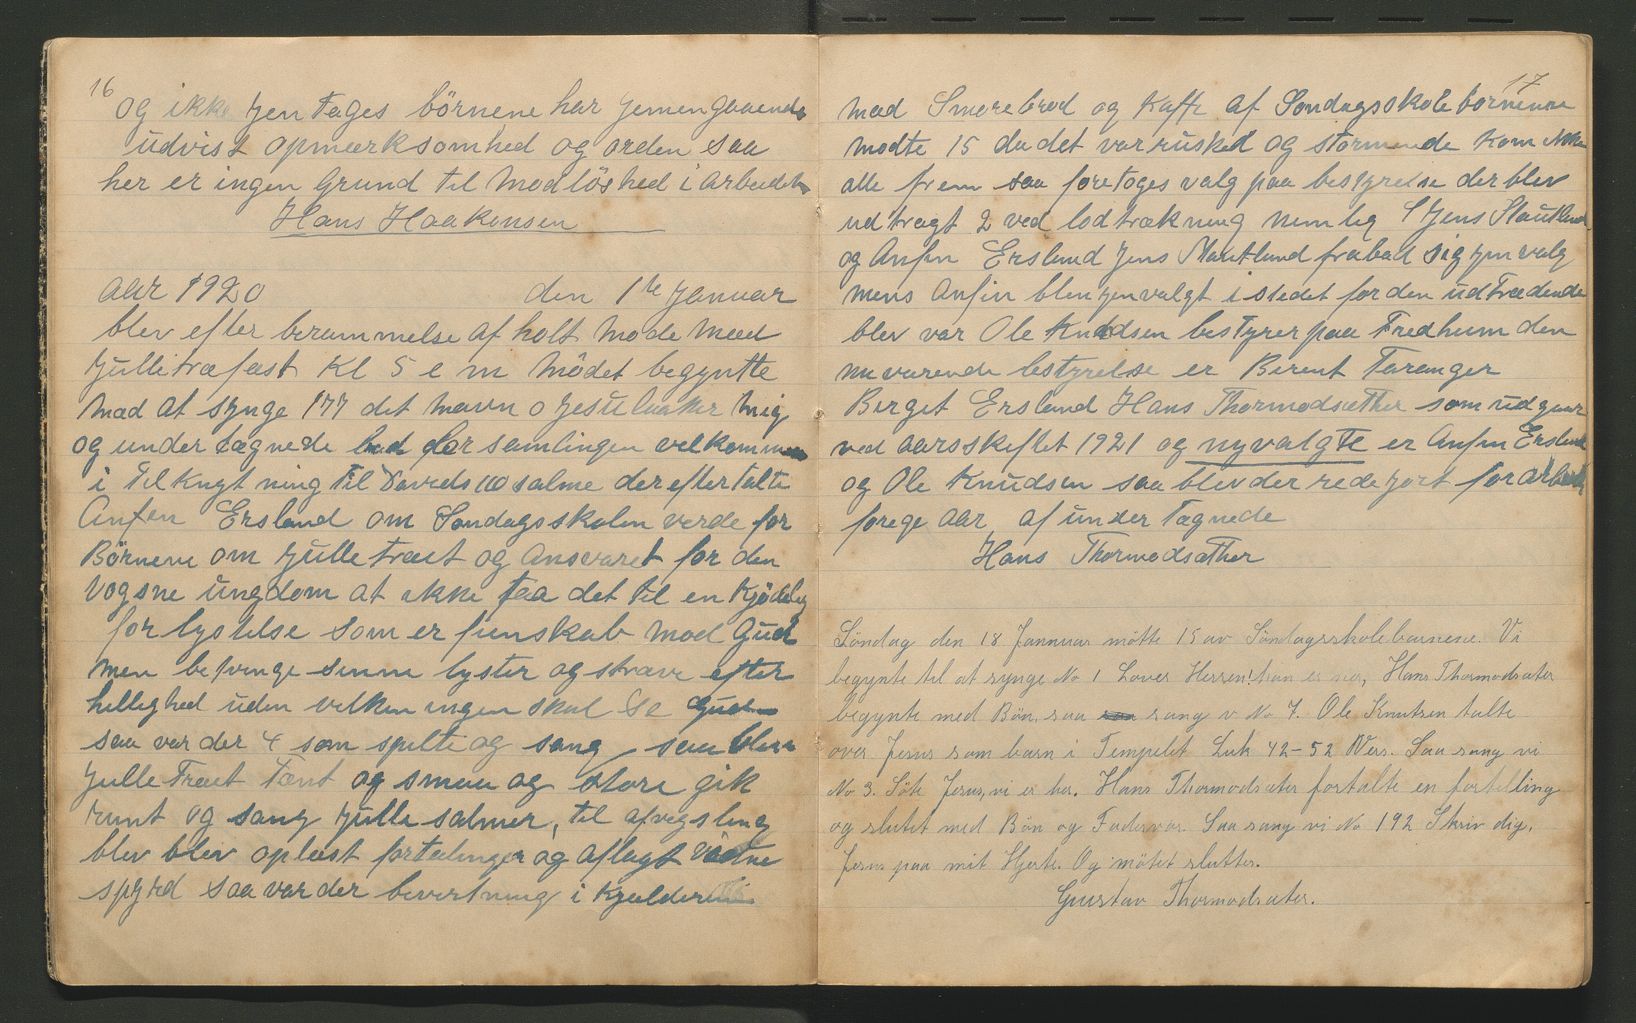 16
og ikke jentages børnene har jemengaaende
udvist opmærksomhed og orden saa
her er ingen Grund til Modløshed i Arbeidet
Hans Haakensen
aar 1920 den 1te Januar
blev efter berammelse af holt Møde Med
Julletræfæst Kl 5 e m Mødet begyntte
Mad at synge 177 det navn o Jesu luaker Mig
og under tægnede bad for samlingen velkommen
i Tilknytning til Davids salme derefter talte
Anfin Ersland om Søndagsskolen verde for
Børnene om Julletræet og Ansvaret for den
Vogsne ungdom at ikke taa det til en Kjødelig
for lystelse som er fienskab mod Gud
men betvinge sinne lyster og stræve efter
hellighed uden vilken ingen skal Se Gud
saa var der 4 som spilte og sang saa blev
Julletræet Tænt og smaa og store gik
runt og sang Julle salmer, til afvegsling
blev blev oplæst fortælinger og aflagt Vidne
spyrd saa var der bevertning i Kjælderen
17
mad Smørebrød og Kaffe af Søndagsskolebørnenne
mødte 15 da det var rusked og stormende kom Ikke
alle frem saa foretoges valg paa bestyrelse der blev
udtragt 2 ved lodtrækning nemlig Jens Flautland
og Anfin Ersland Jens Flautland frabad sig jenvalg
mens Anfin blev jenvalgt i stedet for den udtrædende
blev var Ole Knudsen bestyrer paa Fredhum den
nuværende bestyrelse er Berent Taranger
Berget Ersland Hans Thormodsæther som udgaar
ved aarsskeftet 1921 og nyvalgte er Anfin Ersland
og Ole Knudsen saa blev der rede jort for arbeide
forege Aar af under Tægnede
Hans Thormodsæther
Søndag den 18 Jannuar møtte 15 av Søndagsskolebarnene. Vi
begynte til at synge No 1 Lover Herren! han er nær, Hans Thormodsæter
begynte med Bøn, saa saa sang v No 7. Ole Knutsen talte
over Jesus som barn i Tempelet Luk 42-52 Vers. Saa sang vi
No 3. Søte Jesus, vi er her. Hans Thormodsæter fortalte en fortelling
og slutet med Bøn og Fadervor. Saa sang vi No 192 Skriv dig,
Jesus paa mit Hjerte. Og møtet slutter.
Gustav Thormodsæter.